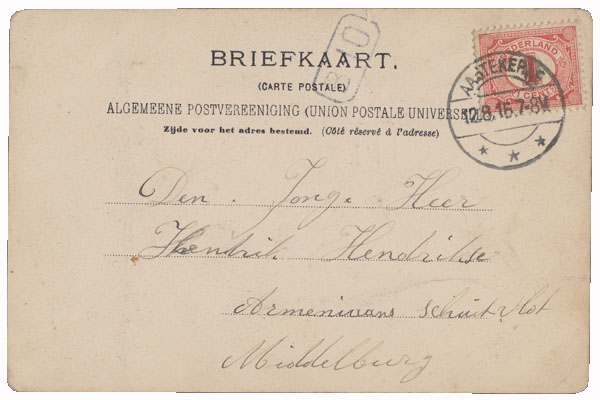 BRIEFKAART.
(CARTE POSTALE)
ALGEMEENE POSTVEREENIGING (UNION POSTALE UNIVERSELLE)
Zijde voor het adres bestemd. (Côté réservé à l'adresse)
NEDERLAND
1
CENT
12.8.16.7-8V
Den Jonge Heer
Hendrik Hendrikse
Middelburg